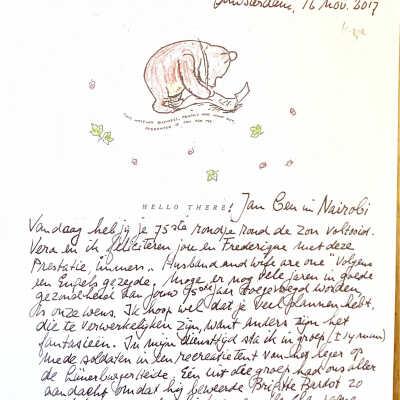 Amsterdam, 16 Nov. 2017
THIS WRITING BUSINESS, PENCILS AND WHAT NOT.
OVERRATED IF YOU ASK ME.
HELLO THERE! Jan Cen in Nairobi
Vandaag heb jij je 75ste rondje rond de zon voltooid.
Vera en ik feliciteren jou en Frederique met deze
Prestatie, immers "Husband and wife are one" volgens
een Engels gezegde. Moge er nog vele jaren in goede
gezondheid aan jouw 75ste toegevoegd worden,
is onze wens. Ik hoop wel dat je veel plannen hebt,
die te verwerkelijken zijn, want anders zijn het
fantasieën. In mijn diensttijd sta ik in groep (± 14 man)
mede soldaten in een recreatietent van het leger op
de Lüneburger Heide. Eén uit die groep had ons aller
aandacht omdat hij beweerde Brigitte Bardot zo